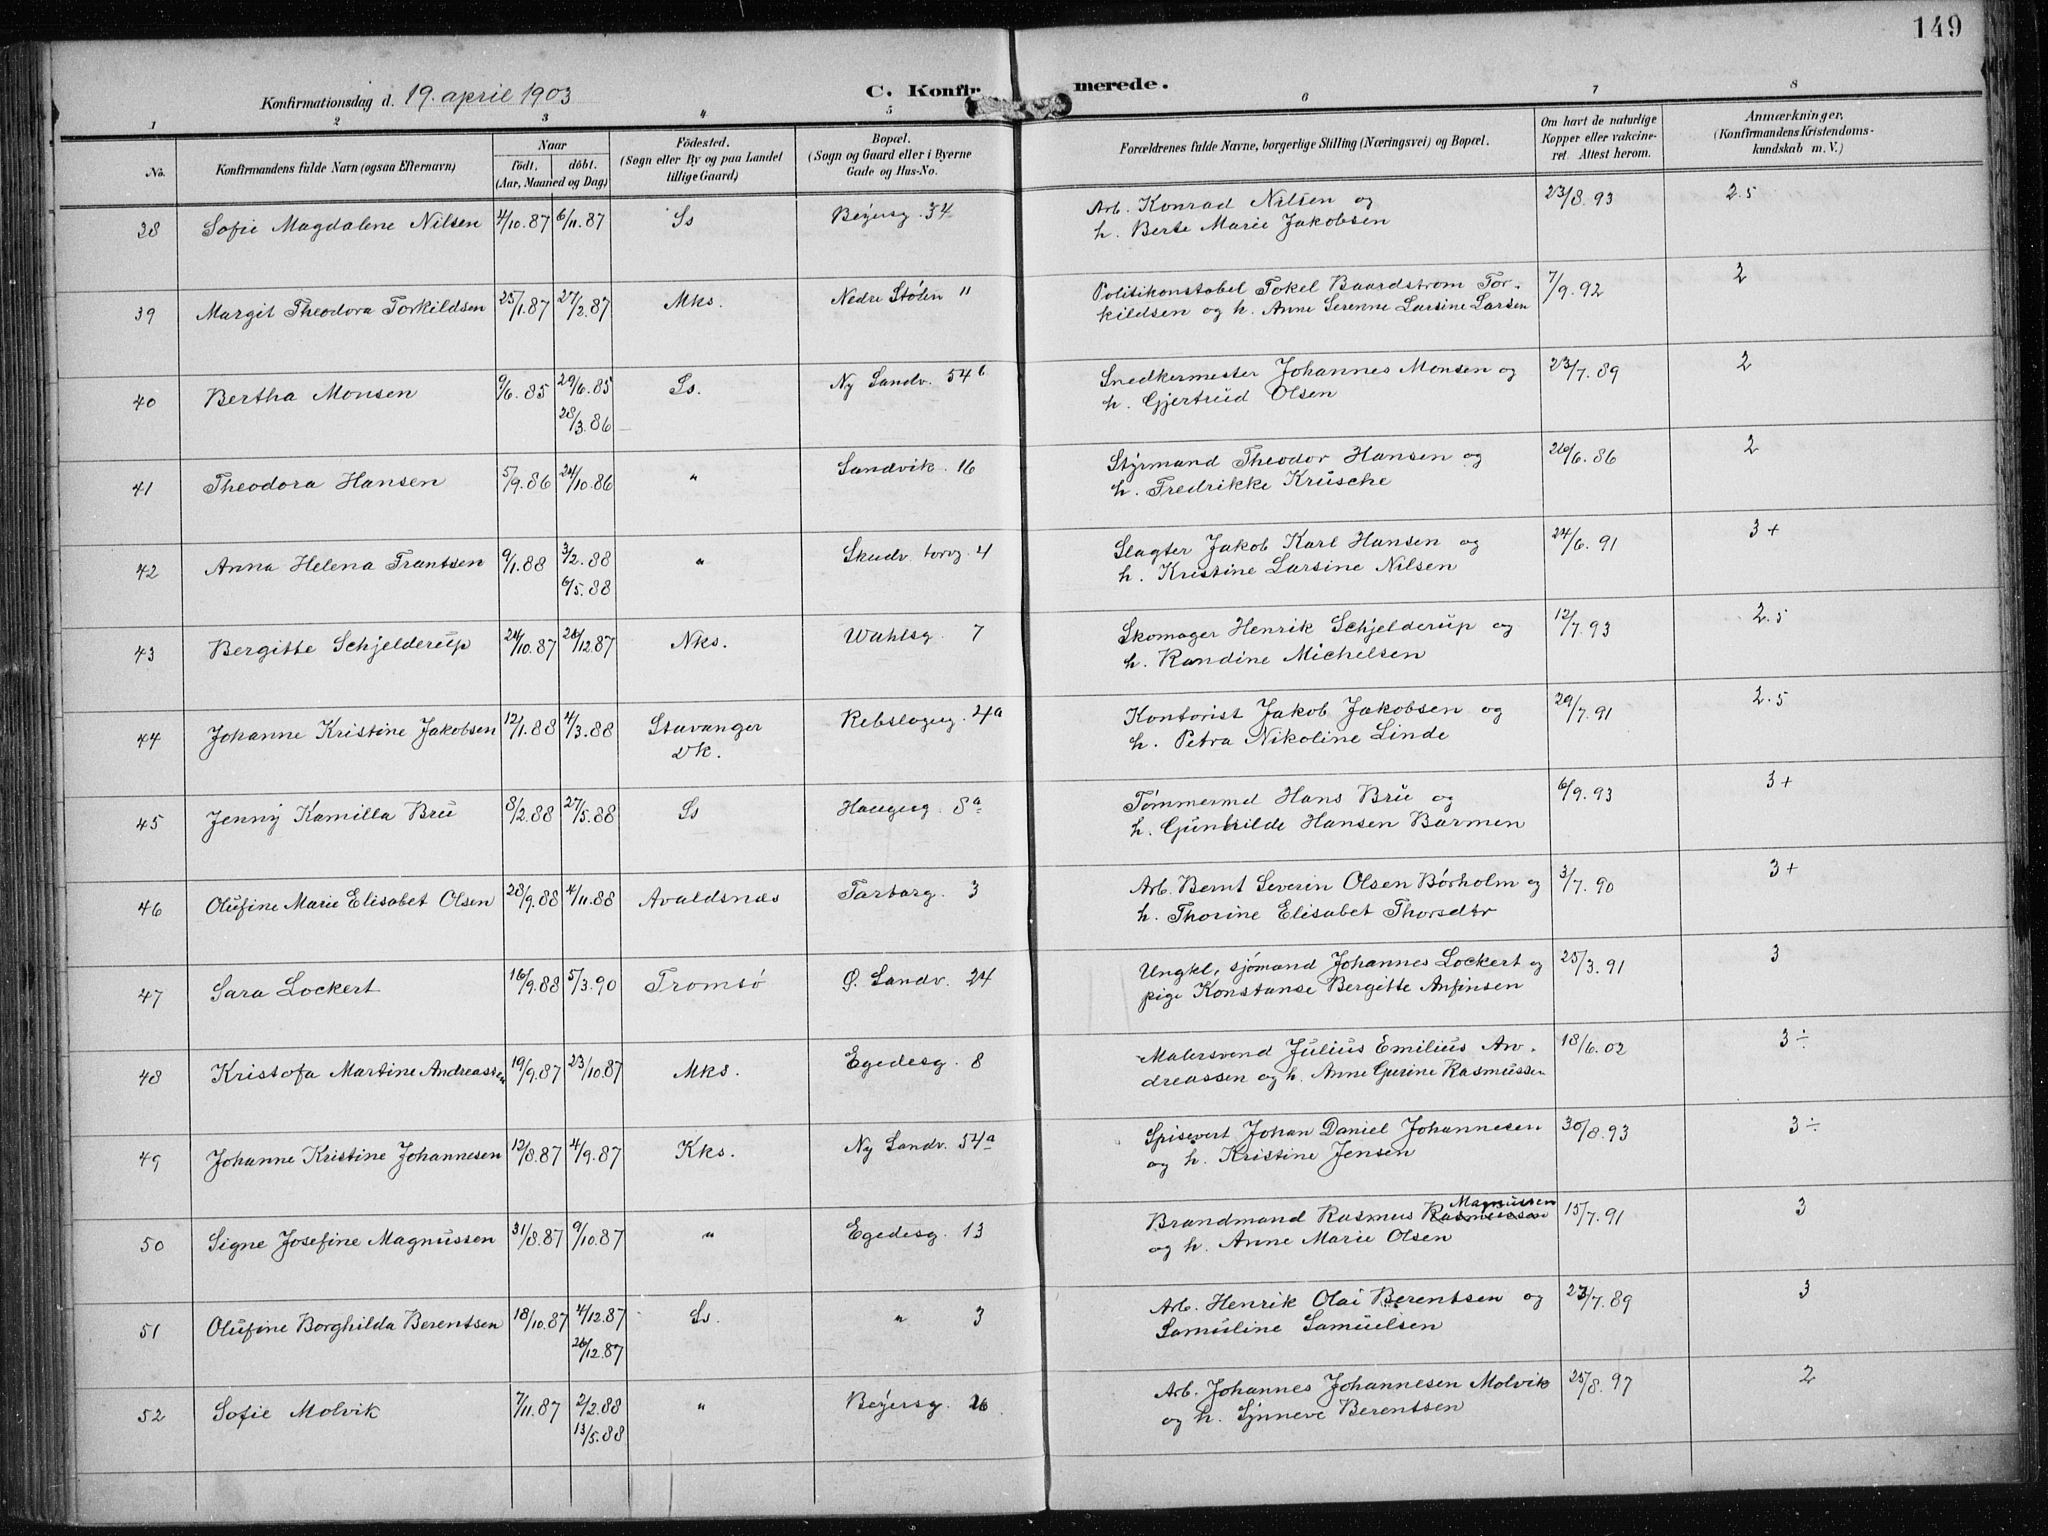 149
Konfirmationsdag d. 19. april 1903
C. Konfirmerede.
1 2 3 4 5 6 7 8
No. Konfirmandens fulde Navn (ogsaa Efternavn) Naar födt. döbt. (Aar, Maaned og Dag) Födested. (Sogn eller By og paa Landet tillige Gaard) Bopæl. (Sogn og Gaard eller i Byerne Gade og Hus-No. Forældrenes fulde Navne, borgerlige Stilling (Næringsvei) og Bopæl. Om havt de naturlige Kopper eller vakcineret. Attest herom. Anmærkninger, (Konfirmandens Kristendomskundskab m. V.)
38 Sofie Magdalene Nilsen 4/10.87 6/11.87 Ss Beyersg. 34 Arb. Konrad Nilsen og 23/8.93 2.5
h. Berte Marie Jakobsen
39 Margit Theodora Torkildsen 25/1.87 27/2.87 Mks. Nedre Stølen 11 Politikonstabel Tokel Baardstrom Tor- 7/9.92 2
kildsen og h. Anne Serenne Larsine Larsen
40 Bertha Monsen 9/6.85 29/6.85 Ss. Ny Sandv. 54b Snedkermester Johannes Monsen og 23/7.89 2
28/3.86 h. Gjertrud Olsen
41 Theodora Hansen 5/9.86 24/10.86 " Sandvik. 16 Styrmand Theodor Hansen og 26/6.86 2
h. Fredrikke Krusche
42 Anna Helena Frantsen 9/1.88 3/2.88 " Skudv. torvg. 4 Slagter Jakob Karl Hansen og 24/6.91 3+
6/5.88 h. Kristine Larsine Nilsen
43 Bergitte Schjelderup 24/10.87 26/12.87 Nks. Wahlsg. 7 Skomager Henrik Schjelderup og 12/7.93 2.5
h. Randine Michelsen
44 Johanne Kristine Jakobsen 12/1.88 4/3.88 Stavanger Rebslagerg. 4a Kontorist Jakob Jakobsen og 29/7.91 2.5
Dk. h. Petra Nikoline Linde
45 Jenny Kamilla Bru 8/2.88 27/5.88 Ss Haugeg. 8a Tømmermd Hans Bru og 6/9.93 3+
h. Gunhilde Hansen Barmen
46 Olufine Marie Elisabet Olsen 28/9.88 4/11.88 Avaldsnæs Tartarg. 3 Arb. Bernt Severin Olsen Børholm og 3/7.90 3+
h. Thorine Elisabet Thorsdtr
47 Sara Lockert 16/9.88 5/3.90 Tromsø Ø. Sandv. 24 Ungkl, sjømand Johannes Lockert og 25/3.91 3
pige Konstanse Bergitte Anfinsen
48 Kristofa Martine Andreassen 19/9.87 23/10.87 Mks. Egedesg. 8 Malersvend Julius Emilius An- 18/6.02 3÷
dreassen og h. Anne Gurine Rasmussen
49 Johanne Kristine Johannesen 12/8.87 4/9.87 Kks. Ny Sandv. 54a Spisevert Johan Daniel Johannesen 30/8.93 3÷
og h. Kristine Jensen
50 Signe Josefine Magnussen 31/8.87 9/10.87 " Egedesg. 13 Brandmand Rasmus Rasmussen Magnussen 15/7.91 3
og h. Anne Marie Olsen
51 Olufine Borghilda Berentsen 18/10.87 4/12.87 Ss. " 3 Arb. Henrik Olai Berentsen og 23/7.89 3
26/12.87 Samuline Samuelsen
52 Sofie Molvik 7/11.87 2/2.88 " Beyersg. 26 Arb. Johannes Johannesen Molvik 25/8.97 2
13/5.88 og h. Synneve Berentsen